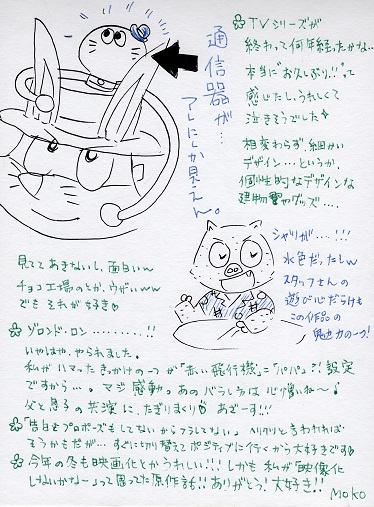 ✿TVシリーズが
終わって何年経ったかな…
本当に"お久しぶり!!"って
感じだし、うれしくて
泣きそうでした
相変わらず、細かい
デザイン…というか、
個性的なデザインな
建物やグッズ…。
通信器が…
アレにしか見えん。
シャツが…!!!
水色だったしw
スタッフさんの
遊び心だらけも
この作品の
魅力の一つ!
見ててあきないし、面白いww
チョコ工場のとか、ウザいww
でもそれが好き
✿ゾロンド・ロン………!!
いやはや、やられました。
私がハマったきっかけの一つが「赤い飛行機」=「パパ」!!設定
ですから…。マジ感動。あのバラしちゃは心憎いね〜♪
父と息子の共演に、たぎりまくり あざーす!!!
✿「告白もプロポーズもしてないからフラれてない」ヘリクツと言われれば
そうかもだが…すぐに切り替えてポジティブに行くから大好きです
✿今年の冬も映画化とかうれしい!!!しかも私が「映像化
しないかな〜」って思ってた原作話!!ありがとう!大好き!!
MOKO